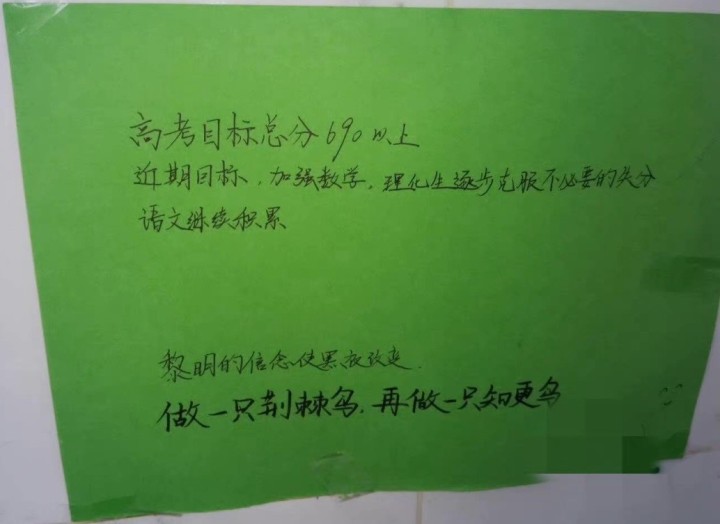 高考目标总分690以上
近期目标，加强数学，理化生逐步克服不必要的失分
语文继续积累
黎明的信念使黑夜改变.
做一只荆棘鸟，再做一只知更鸟